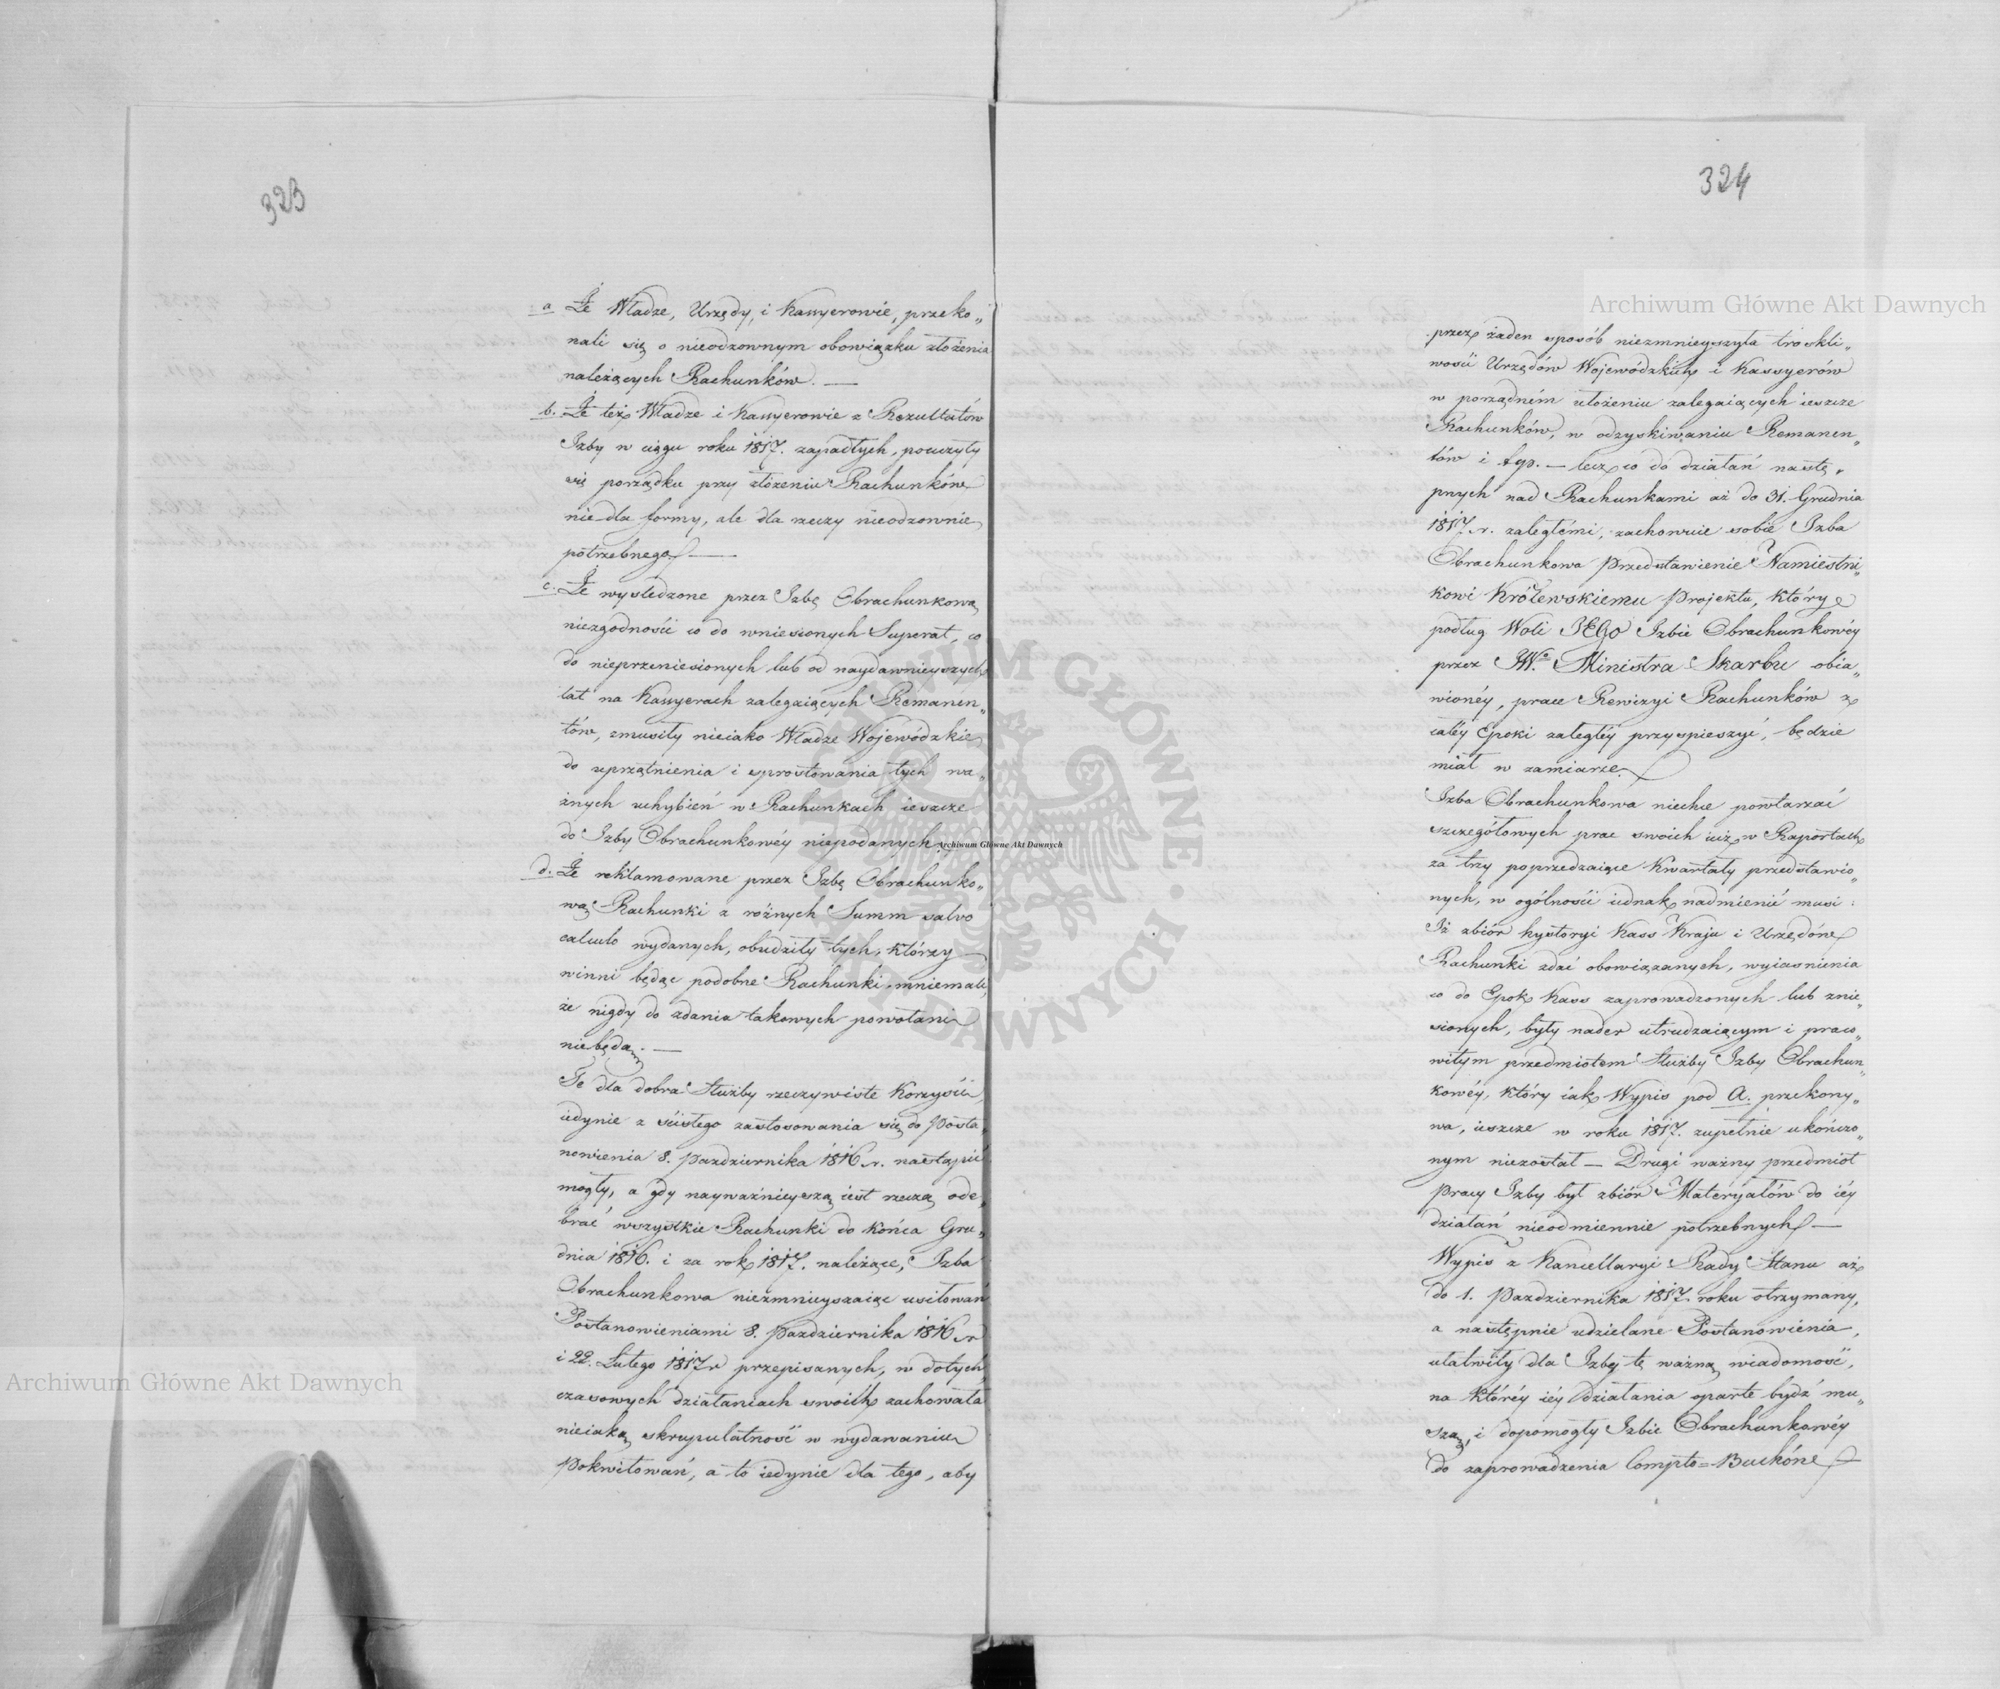 323
a Że Władze, Urzędy, i Kassyerowie, przeko„
nali się o nieodzownym obowiązku złożenia
należących Rachunków. —
b. Że też Władze i Kassyerowie z Rezultatów
Izby w ciągu roku 1817. zapadłych, pouczyły
się porządku przy złożeniu Rachunków
nie dla formy, ale dla rzeczy nieodzownie
potrzebnego —
c. Że wyśledzone przez Izbę Obrachunkową
niezgodności co do wniesionych Superat, co
do nieprzeniesionych lub od naydawnieyszych
lat na Kassyerach zalegaiących Remanen„
tów, zmusiły nieiako Władze Wojewódzkie
do uprzątnienia i sprostowania tych wa„
żnych uchybień w Rachunkach ieszcze
do Izby Obrachunkowéy niepodanych.
d. Że reklamowane przez Izbę Obrachunko„
wą Rachunki z różnych Summ salvo
calculo wydanych, obudziły tych, którzy
winni będąc podobne Rachunki, mniemali,
że nigdy do zdania takowych powołani
niebędą. —
Te dla dobra Służby rzeczywiste korzyści
iedynie z ścisłego zastosowania się do Posta„
nowienia 8. Pazdziernika 1816 r. nastąpić
mogły, a gdy nayważnieyszą iest rzeczą ode„
brać wszystkie Rachunki do końca Gru„
dnia 1816. i za rok 1817. należące, Izba
Obrachunkowa niezmnieyszaiąc usiłowań
Postanowieniami 8. Pazdziernika 1816 r
i 22. Lutego 1817 r przepisanych, w dotych
czasowych działaniach swoich zachowała
nieiaką skrupulatność w wydawaniu
Pokwitowań, a to iedynie dla tego, aby
324
przez żaden sposób niezmnieyszyła troskli„
wości Urzędów Wojewódzkich i Kassyerów
w porządném ułożeniu zalegaiących ieszcze
Rachunków, w odzyskiwaniu Remanen„
tów i t.p. — lecz co do działań nastę„
pnych nad Rachunkami aż do 31. Grudnia
1817 r. zaległémi, zachowuie sobie Izba
Obrachunkowa Przedstawienie Namiestni„
kowi Królewskiemu Projektu, który
podług Woli JEGO Izbie Obrachunkowéy
przez JW.º Ministra Skarbu obia„
wionéy, prace Rewizyi Rachunków z
całéy Epoki zaległéy przyspieszyć, będzie
miał w zamiarze.
Izba Obrachunkowa niechce powtarzać
szczegółowych prac swoich iuż w Raportach
za trzy poprzedzaiące Kwartały przedstawio„
nych, w ogólności iednak nadmienić musi:
Iż zbiór hystoryi Kass Kraju i Urzędów
Rachunki zdać obowiązanych, wyiaśnienia
co do Epok Kass zaprowadzonych lub znie„
sionych, były nader utrudzaiącym i praco„
witym przedmiotem Służby Izby Obrachun„
kowéy, który iak Wypis pod A. przekony„
wa, ieszcze w roku 1817. zupełnie ukończo„
nym niezostał — Drugi ważny przedmiot
Pracy Izby był zbiór Materyałów do iéy
działań nieodmiennie potrzebnych —
Wypis z Kancellaryi Rady Stanu aż
do 1. Pazdziernika 1817. roku otrzymany,
a następnie udzielane Postanowienia,
ułatwiły dla Izby tę ważną wiadomość,
na któréy iéy działania oparte bydź mu„
szą, i dopomogły Izbie Obrachunkowéy
do zaprowadzenia Compto=Buchów
Archiwum Główne Akt Dawnych
Archiwum Główne Akt Dawnych
Archiwum Główne Akt Dawnych
ARCHIWUM GŁÓWNE AKT DAWNYCH